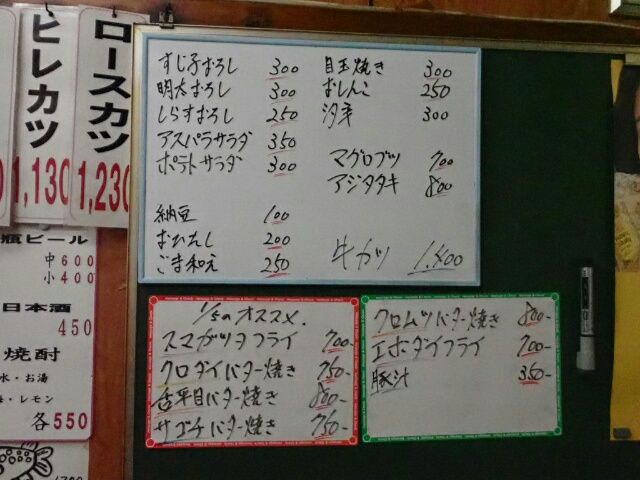 ロースカツ
1,230
ヒレカツ
1,130
瓶ビール
中600
小400
日本酒
450
焼酎
水・お湯
・レモン
各550
すじ子おろし 300
明太おろし 300
しらすおろし 250
アスパラサラダ 350
ポテトサラダ 300
納豆 100
おひたし 200
ごま和え 250
目玉焼き 300
おしんこ 250
300
マグロブツ 700
アジタタキ 800
牛カツ 1,400
1/5のオススメ.
スマガツヲフライ 700-
クロダイバター焼き 750-
舌平目バター焼き 800-
サゴチバター焼き 750-
クロムツバター焼き 800-
エボダイフライ 700-
豚汁 350-